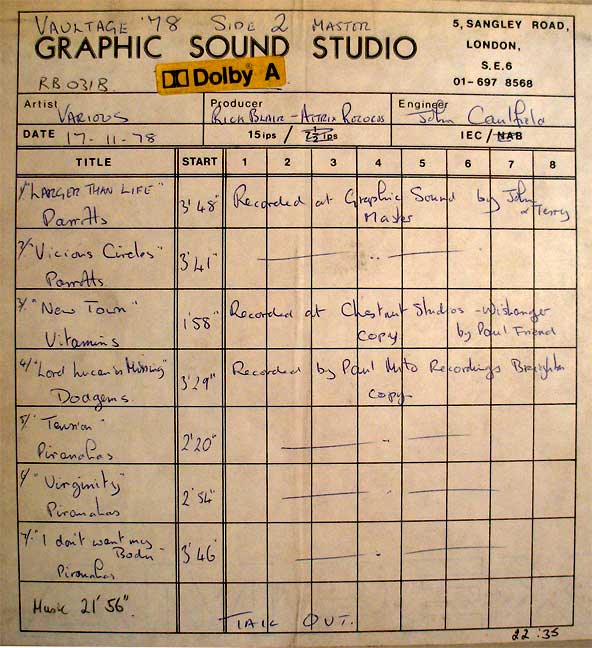 VAULTAGE '78 SIDE 2 MASTER
GRAPHIC SOUND STUDIO
5, SANGLEY ROAD,
LONDON,
S.E.6
01-697 8568
RB 03 1B
Dolby A
Artist VARIOUS
Producer RICK BLAIR - ATTRIX RECORDS
Engineer John Caulfield
DATE 17-11-78
15 ips / 7½ ips
IEC / NAB
TITLE START 1 2 3 4 5 6 7 8
1/ "LARGER THAN LIFE" Parrots 3'48" Recorded at Graphic Sound by John & Terry
Master
2/ "Vicious Circles" Parrots 3'41" — " —
3/ "New Town" Vitamins 1'58" Recorded at Chestnut Studios - by Paul Friend
Copy
4/ "Lord Lucan is Missing" Dodgems 3'29" Recorded by Paul Recordings Brighton
Copy
5/ "Tension" Piranahas 2'20" — " —
6/ "Virginity" Piranahas 2'54" — " —
7/ "I don't want my Body" Piranahas 3'46" — " —
Music 21'56"
TAIL OUT.
22:35